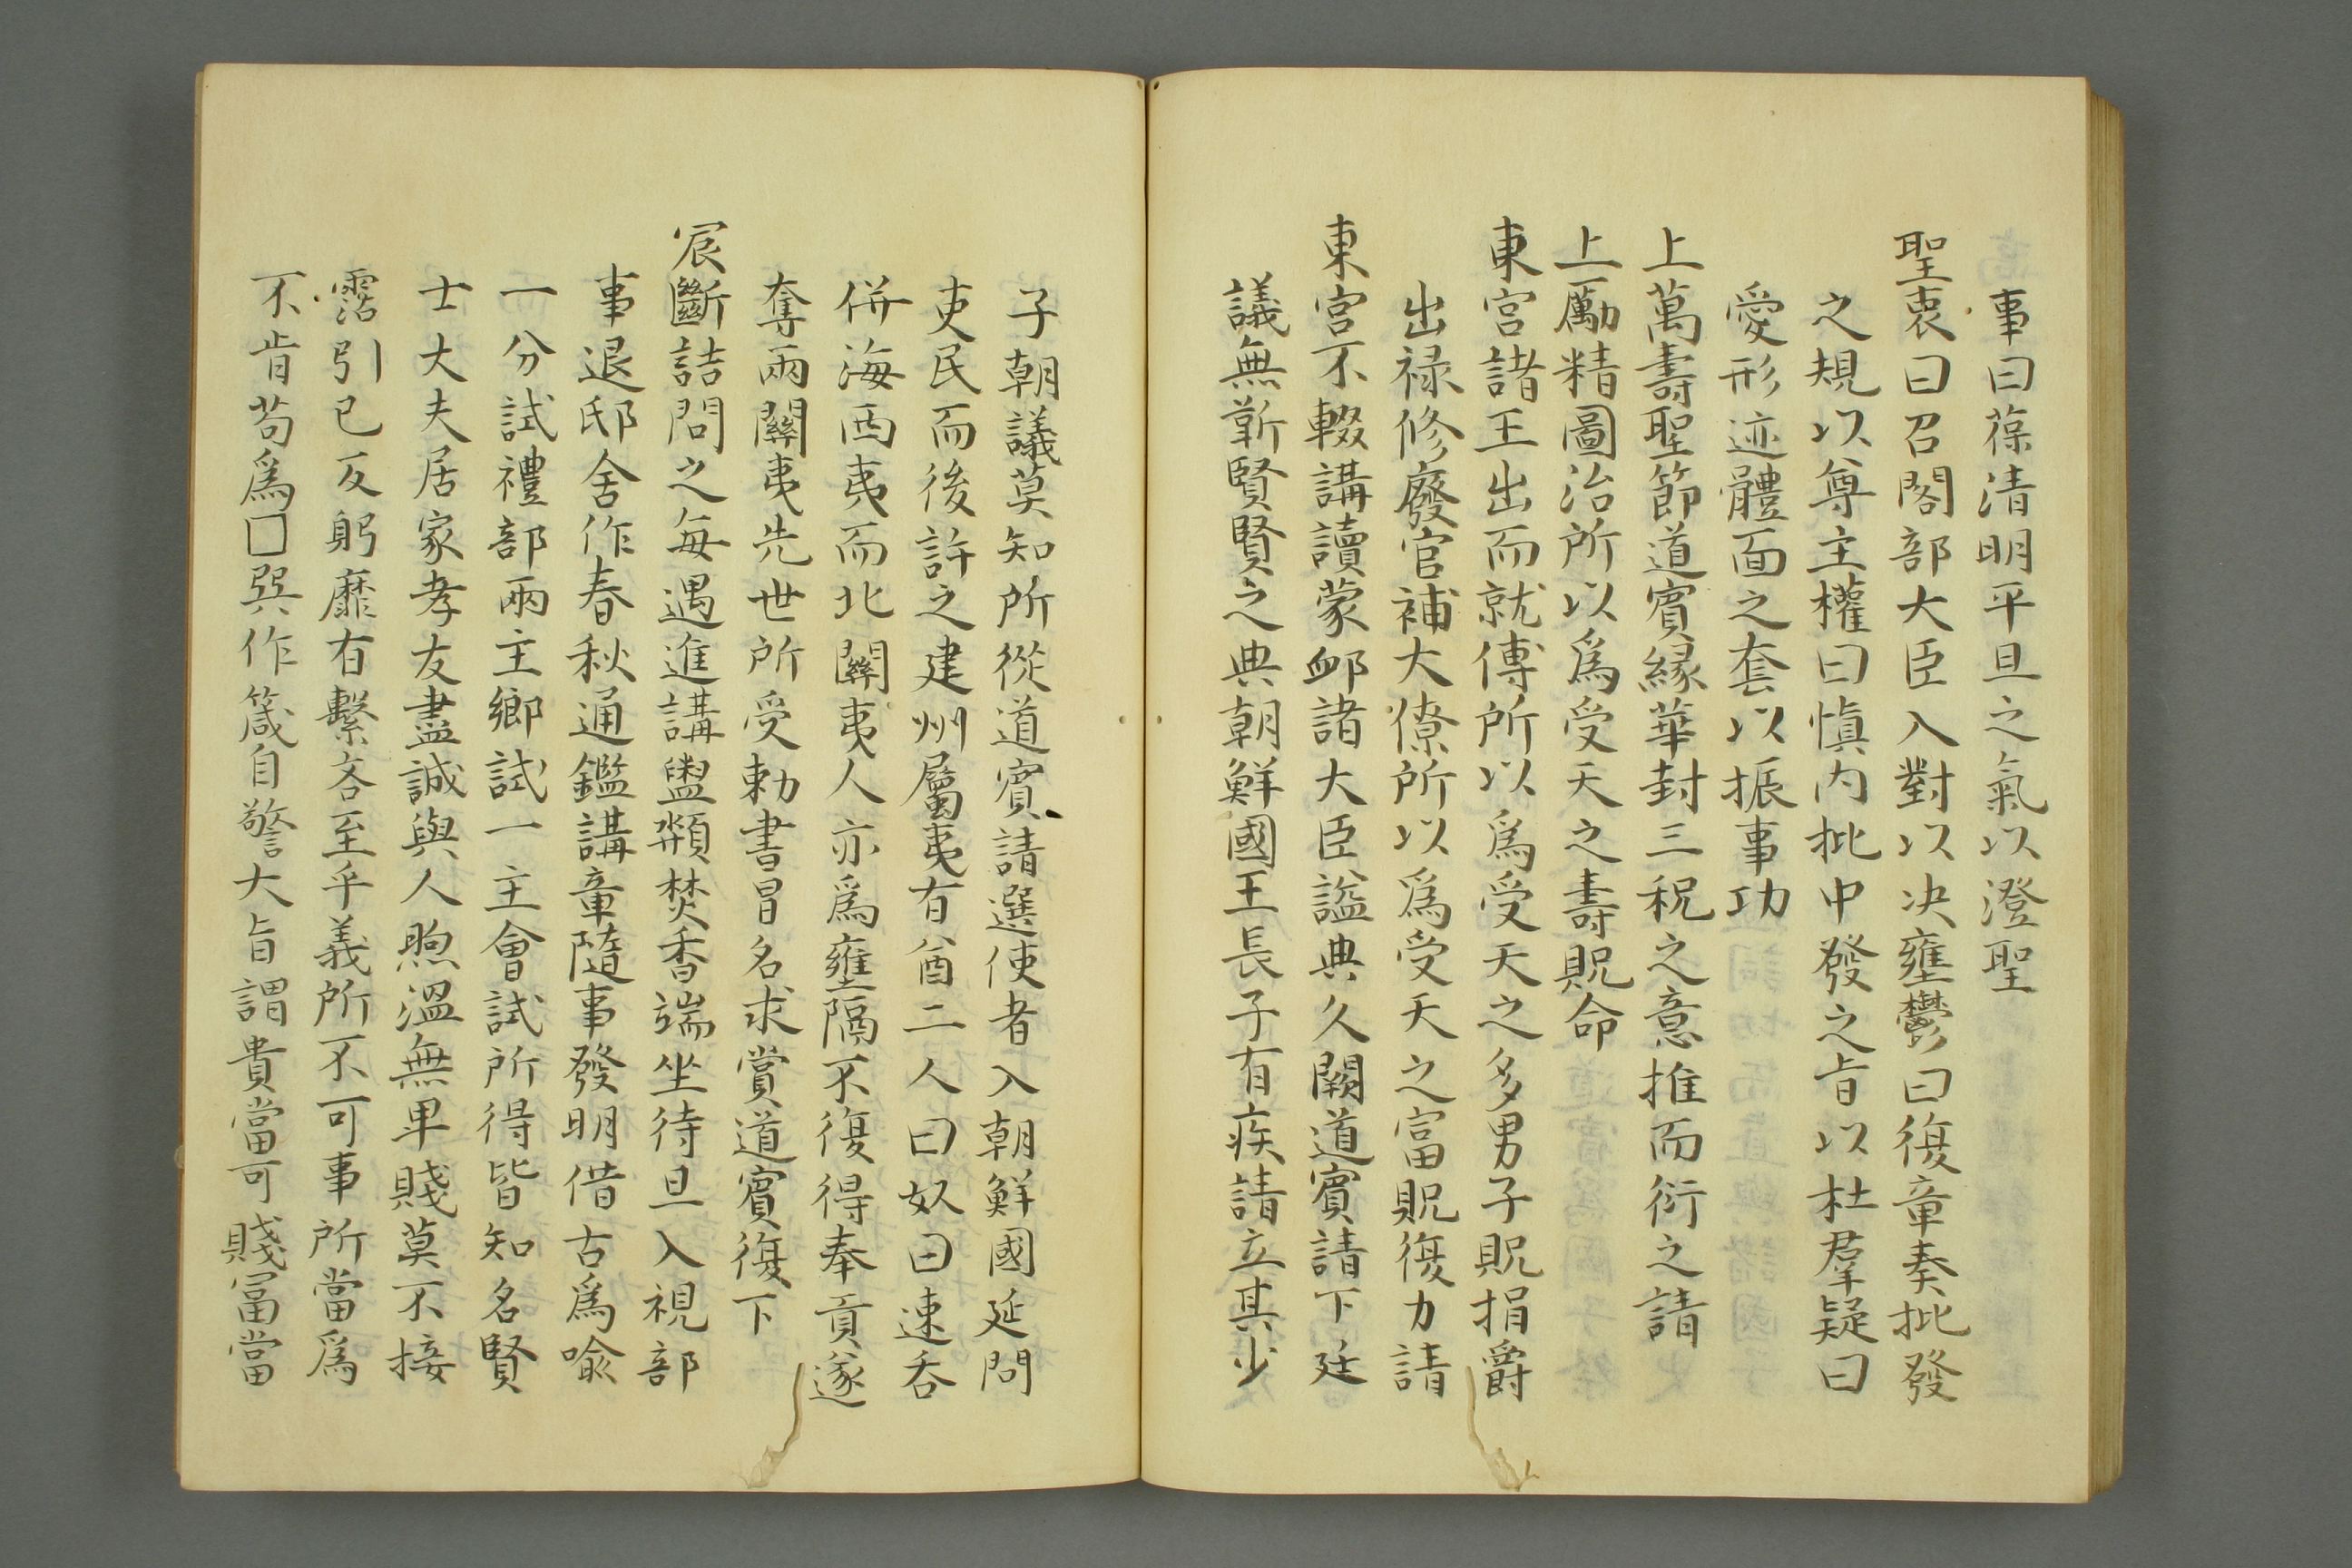 事曰葆清明平旦之氣以澄聖
聖衷曰召閣部大臣入對以决壅鬱曰復章奏批發
之規以尊主權曰慎内批中發之旨以杜羣疑曰
愛形迹體面之套以振事功
上萬壽聖節道賓緣華封三祝之意推而衍之請
上厲精圖治所以爲受天之壽貺命
東宮諸王出而就傅所以爲受天之多男子貺捐爵
出禄修廢官補大僚所以爲受天之富貺復力請
東宮不輟講讀蒙䘏諸大臣謚典久闕道賓請下廷
議無靳賢賢之典朝鮮國王長子有疾請立其少
子朝議莫知所從道賓請選使者入朝鮮國延問
吏民而後許之建州屬夷有酋二人曰奴曰速吞
併海西夷而北關夷人亦爲壅隔不復得奉貢遂
奪兩關夷先世所受勅書冒名求賞道賓復下
宸斷詰問之每遇進講盥頮焚香端坐待旦入視部
事退邸舍作春秋通鑑講章隨事發明借古爲喩
一分試禮部兩主鄉試一主會試所得皆知名賢
士大夫居家孝友盡誠與人煦溫無卑賤莫不接
霑引已反躬靡有繫吝至乎義所不可事所當爲
不肯苟爲囗巽作箴自警大旨謂貴當可賤富當